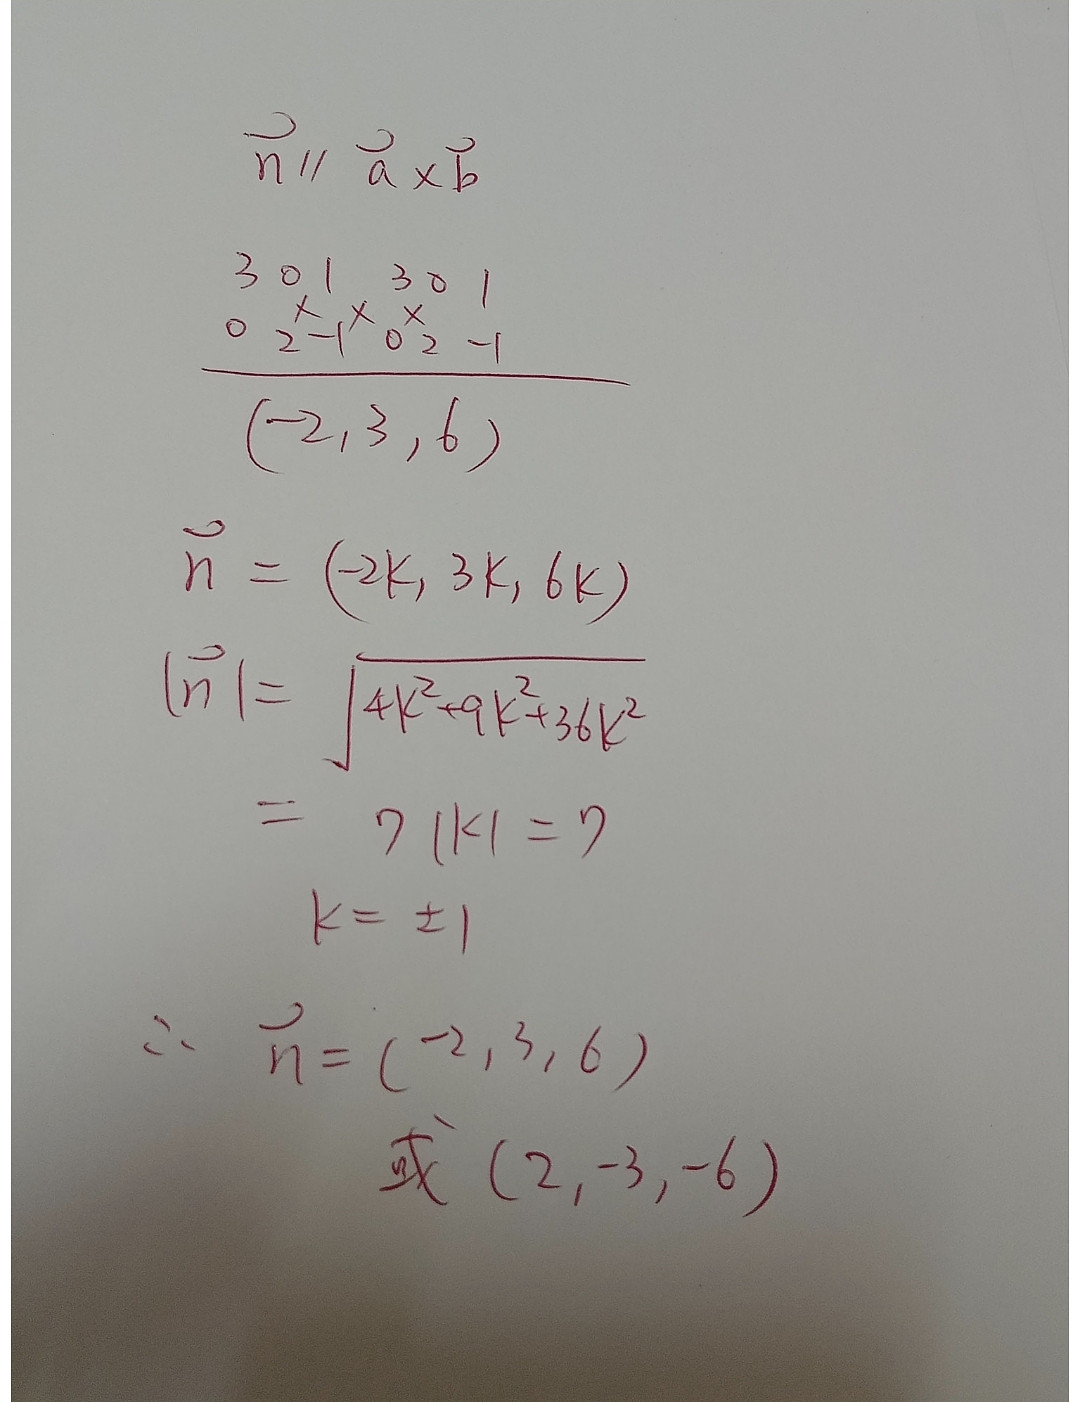 n⃗ // a⃗ × b⃗
3 0 1 3 0 1
× × ×
0 2 -1 0 2 -1
(-2, 3, 6)
n⃗ = (-2k, 3k, 6k)
|n⃗| = √(4k²+9k²+36k²)
= 7|k| = 7
k = ±1
∴ n⃗ = (-2, 3, 6)
或 (2, -3, -6)